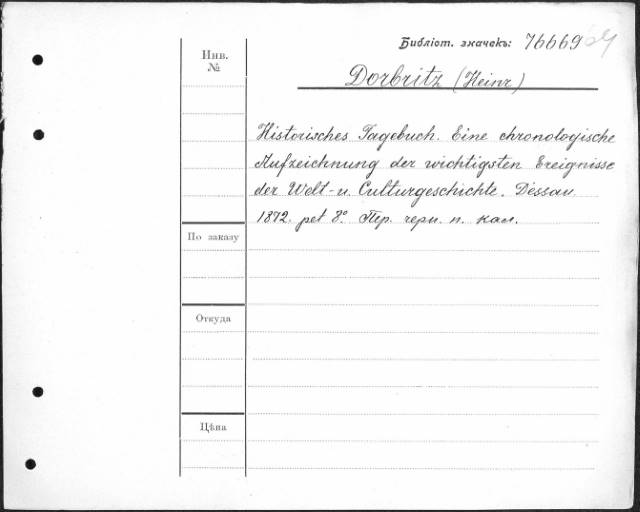 Библіот. значекъ: 76669
Инв.
№
Dorbritz (Heinr)
Historisches Tagebuch. Eine chronologische
Aufzeichnung der wichtigsten Ereignisse
der Welt- u. Culturgeschichte. Dessau
1872. pet 8°. Пер. черн. п. кал.
По заказу
Откуда
Цѣна